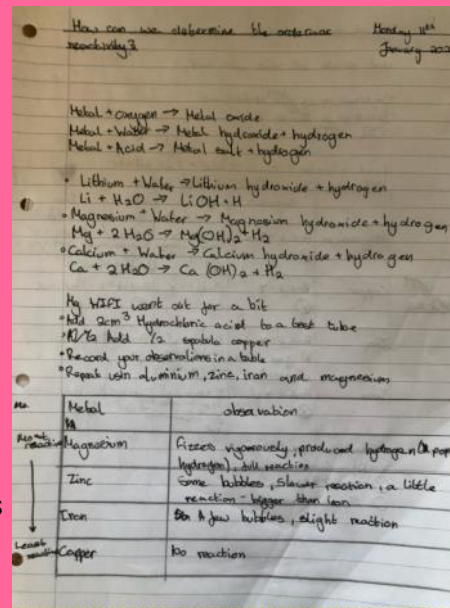 How can we determine the order of Monday 11th
reactivity? January 202
Metal + oxygen → Metal oxide
Metal + Water → Metal hydroxide + hydrogen
Metal + Acid → Metal salt + hydrogen
• Lithium + Water → Lithium hydroxide + hydrogen
Li + H2O → LiOH + H
• Magnesium + Water → Magnesium hydroxide + hydrogen
Mg + 2H2O → Mg(OH)2 + H2
• Calcium + Water → Calcium hydroxide + hydrogen
Ca + 2H2O → Ca (OH)2 + H2
My WIFI went out for a bit
• Add 2cm3 Hydrochloric acid to a test tube
• Add 1/2 spatula copper
• Record your observations in a table
• Repeat usin aluminium, zinc, iron and magnesium
Metal observation
Most reactive Magnesium Fizzes vigorously, produced hydrogen (pop
hydrogen), full reaction
Zinc Some bubbles, slower reaction, a little
reaction - bigger than iron
Iron A few bubbles, slight reaction
Least reactive Copper No reaction
s